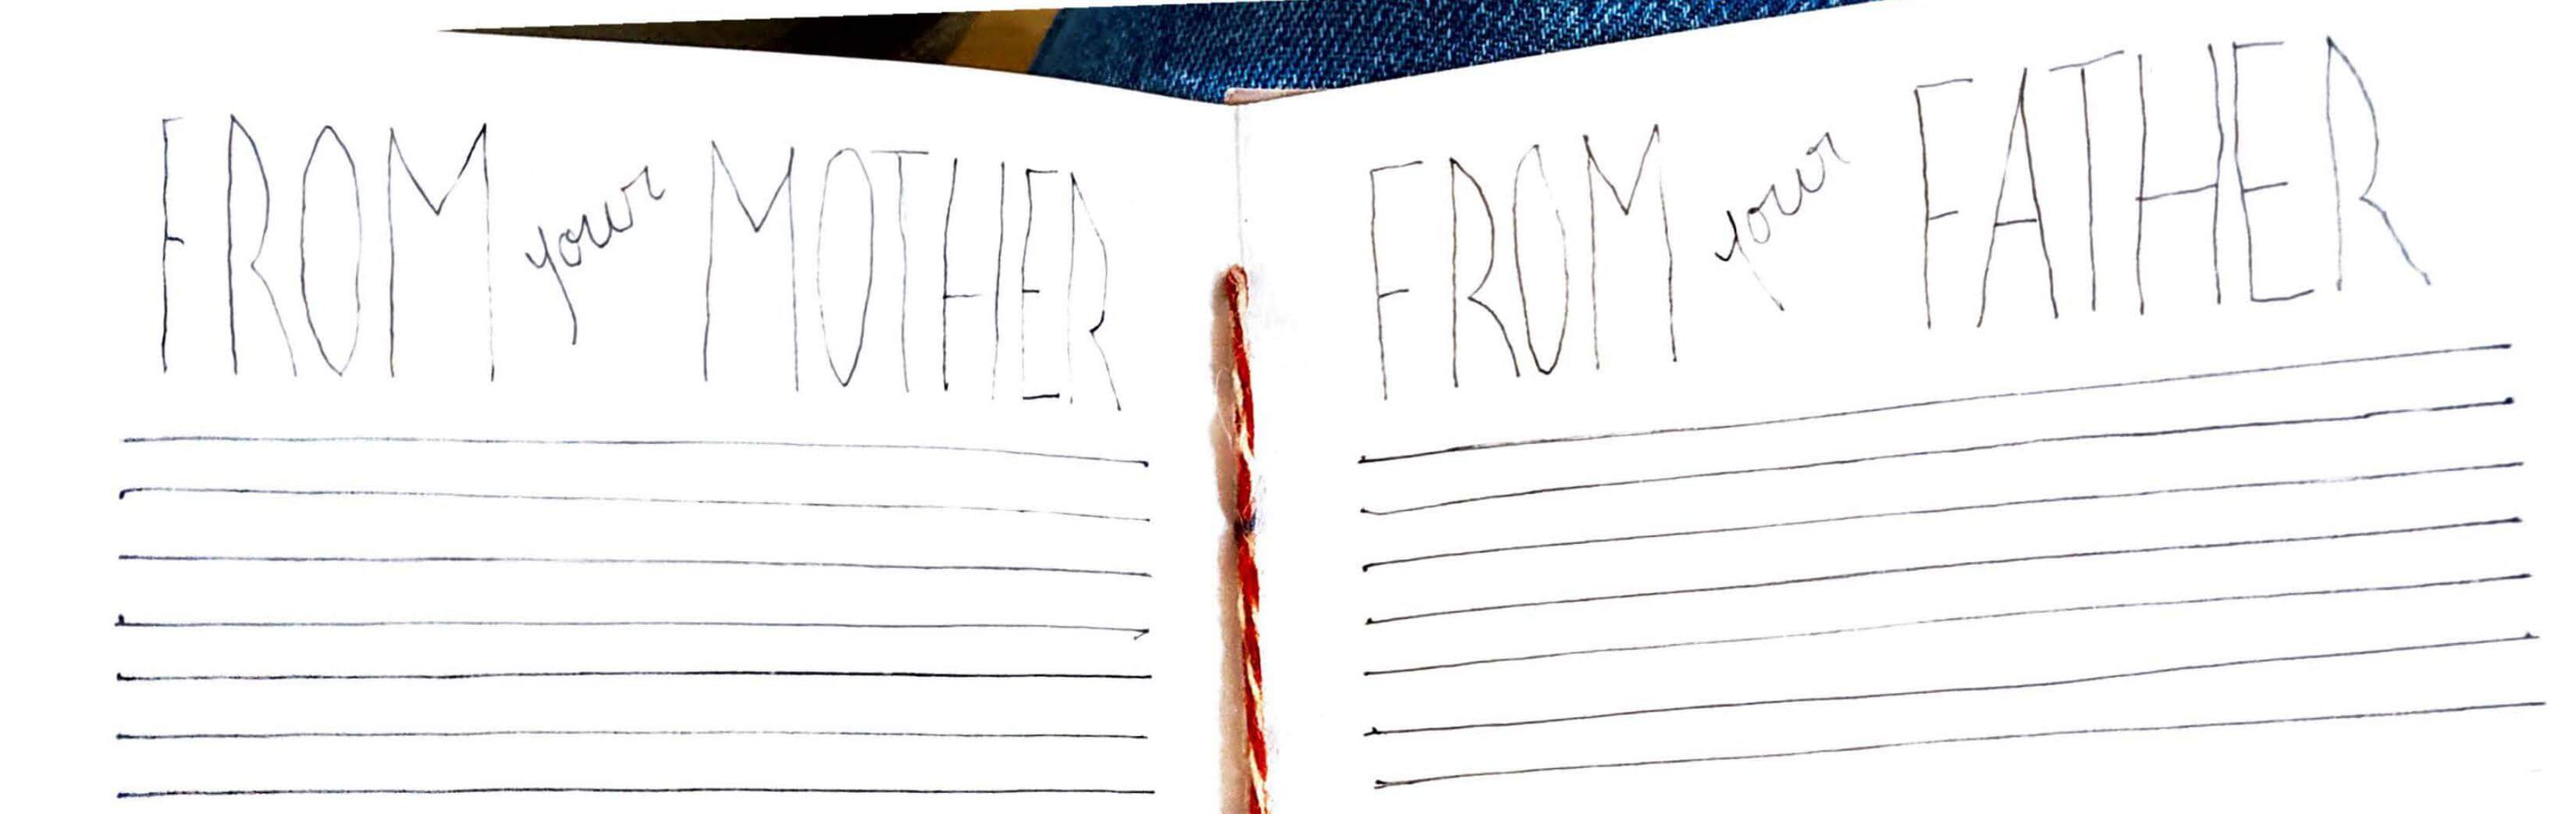 FROM your MOTHER
FROM your FATHER